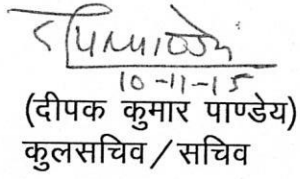 10-11-15
(दीपक कुमार पाण्डेय)
कुलसचिव/सचिव